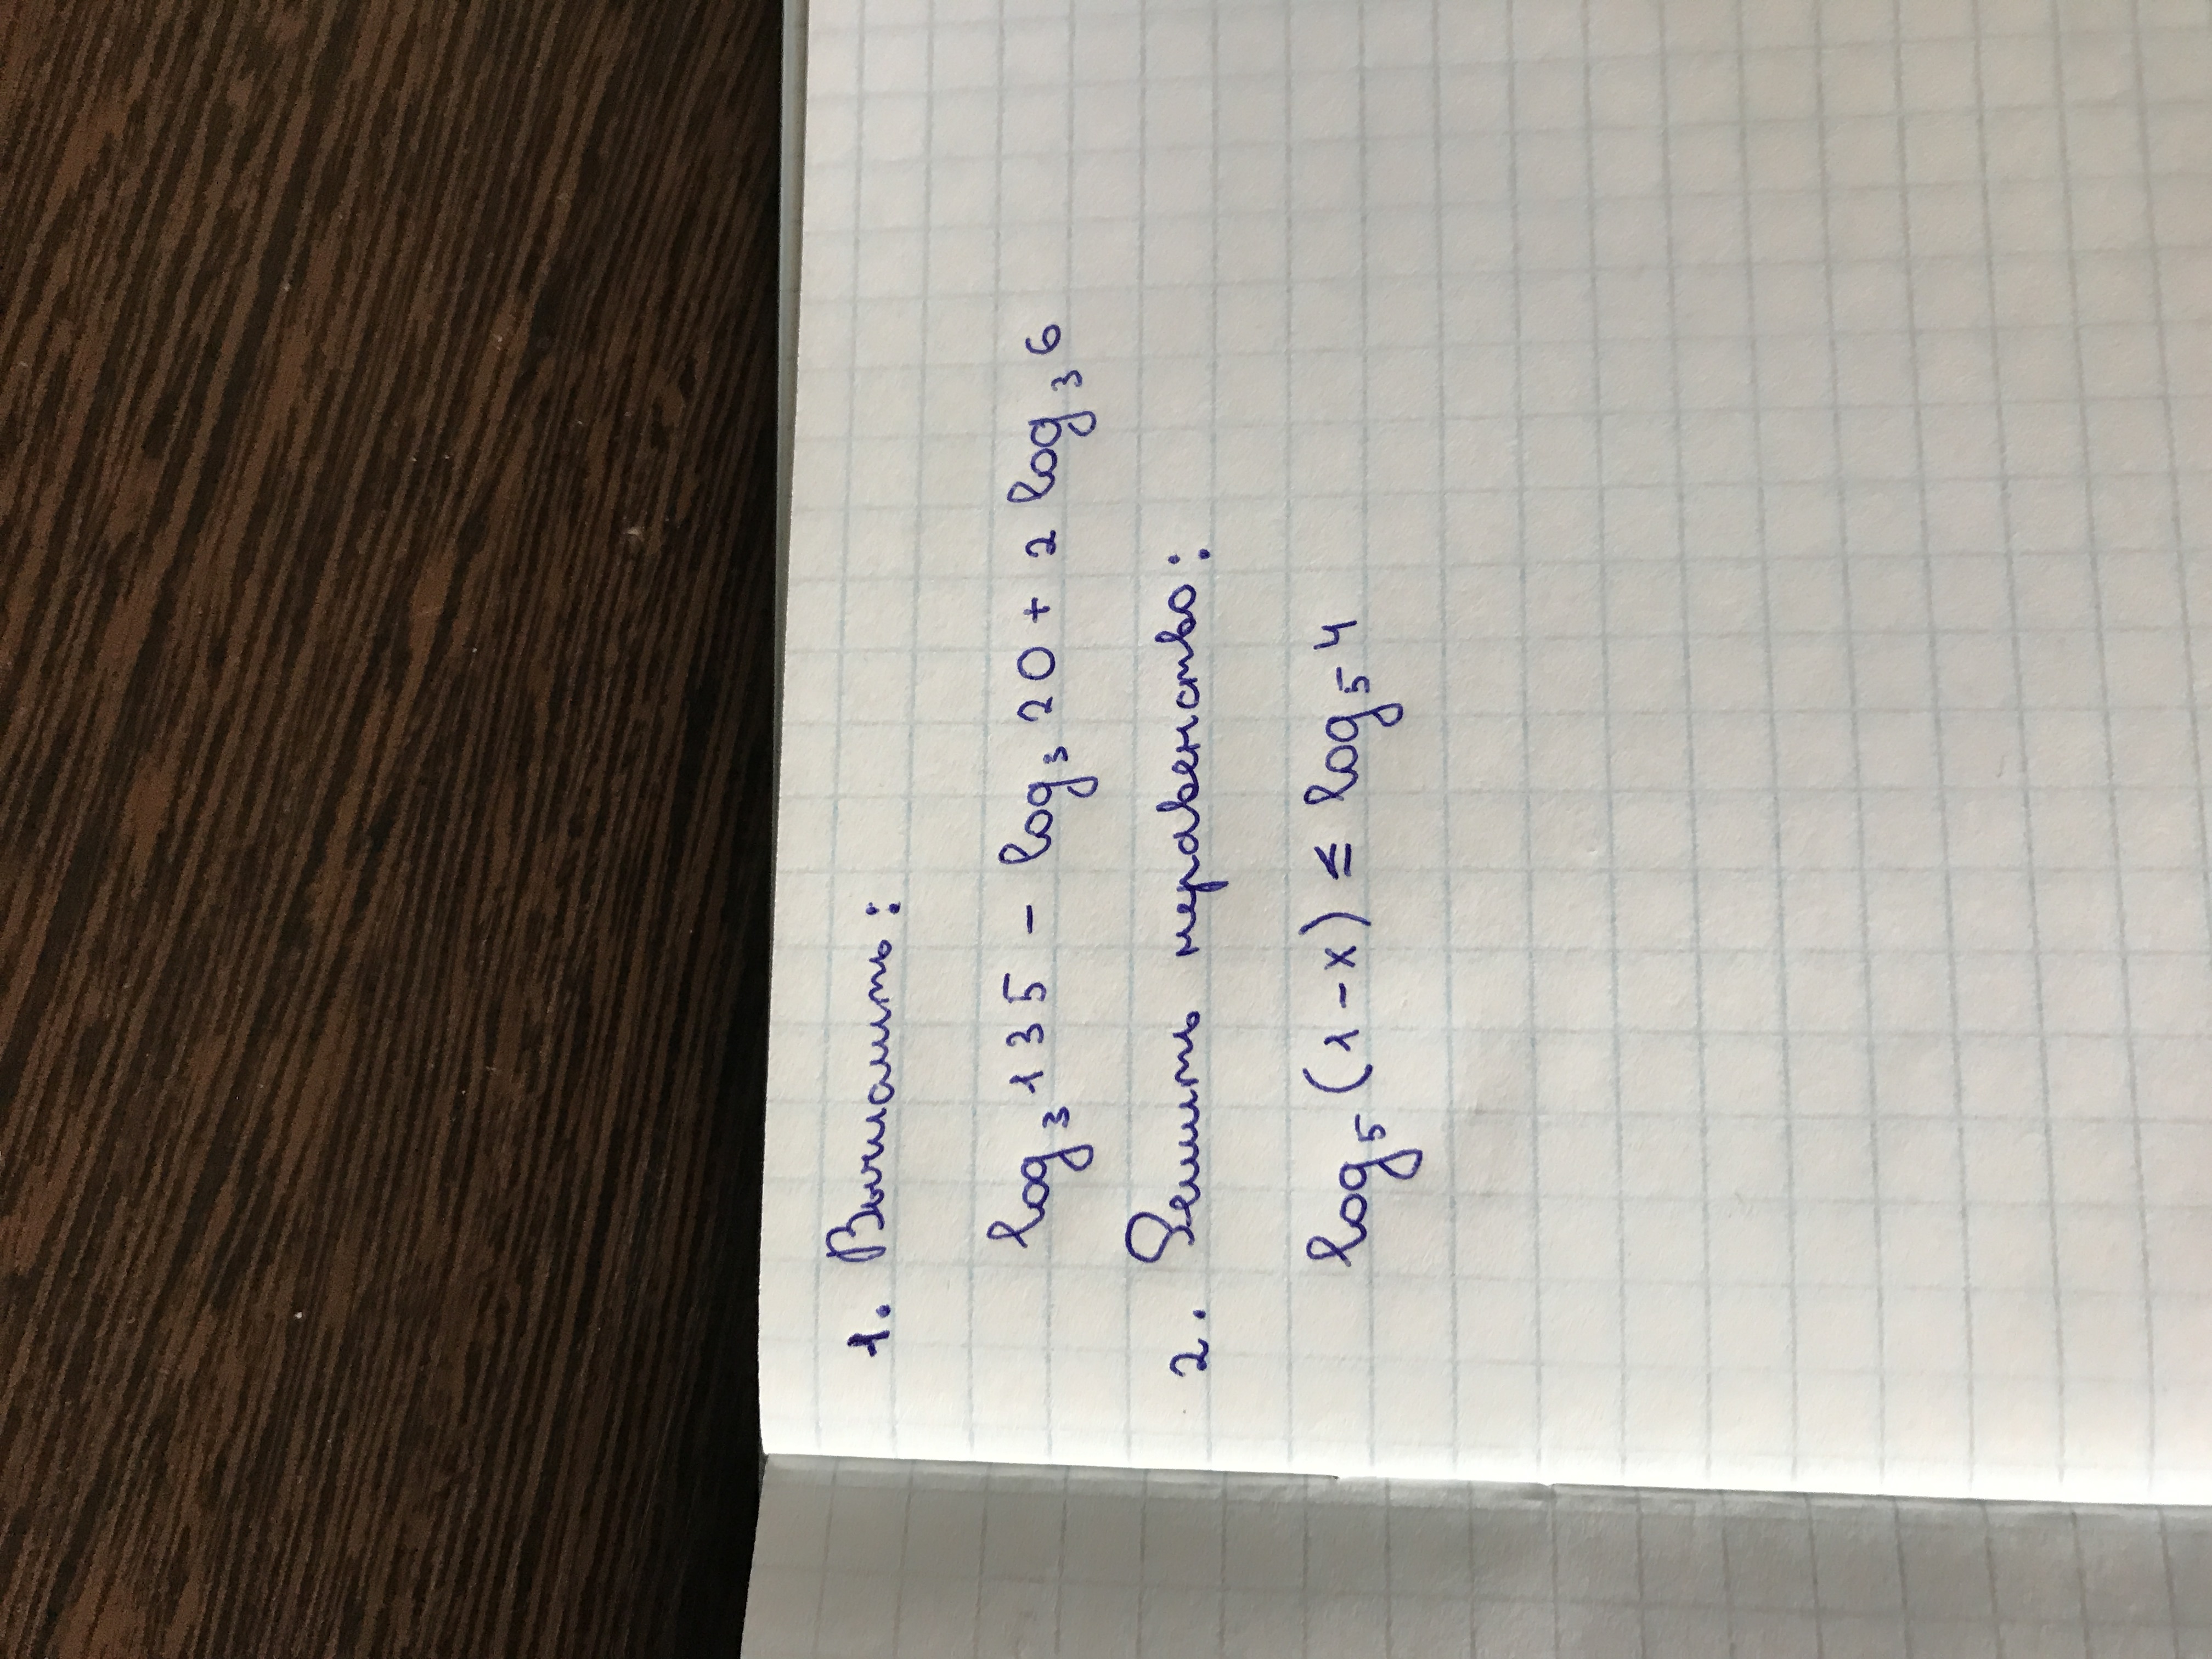 1. Вычислить:
log₃135 - log₃20 + 2 log₃6
2. Решить неравенство:
log₅(1-x) ≤ log₅4